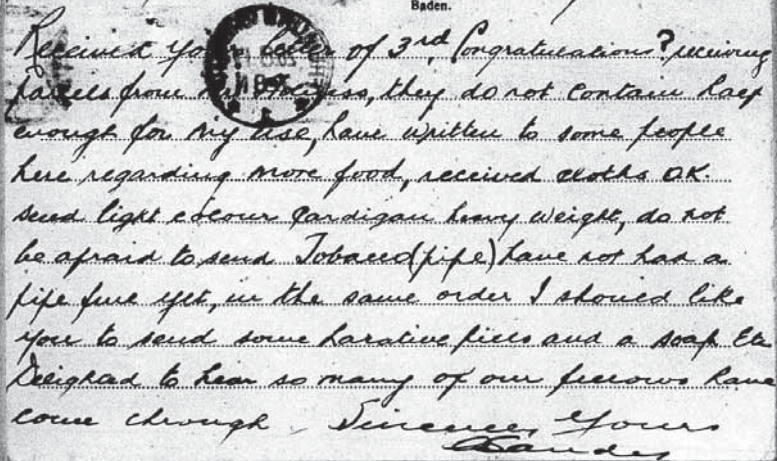 Baden.
Received your letter of 3rd, Congratulations? receiving
parcels from Mrs , they do not contain half
enough for my use, have written to some people
here regarding more food, received cloths O.K.
send light colour Cardigan heavy weight, do not
be afraid to send Tobacco (pipe) have not had a
pipe full yet, in the same order I should like
you to send some laxative pills and a soap Etc
Delighted to hear so many of our fellows have
come through. Sincerely Yours